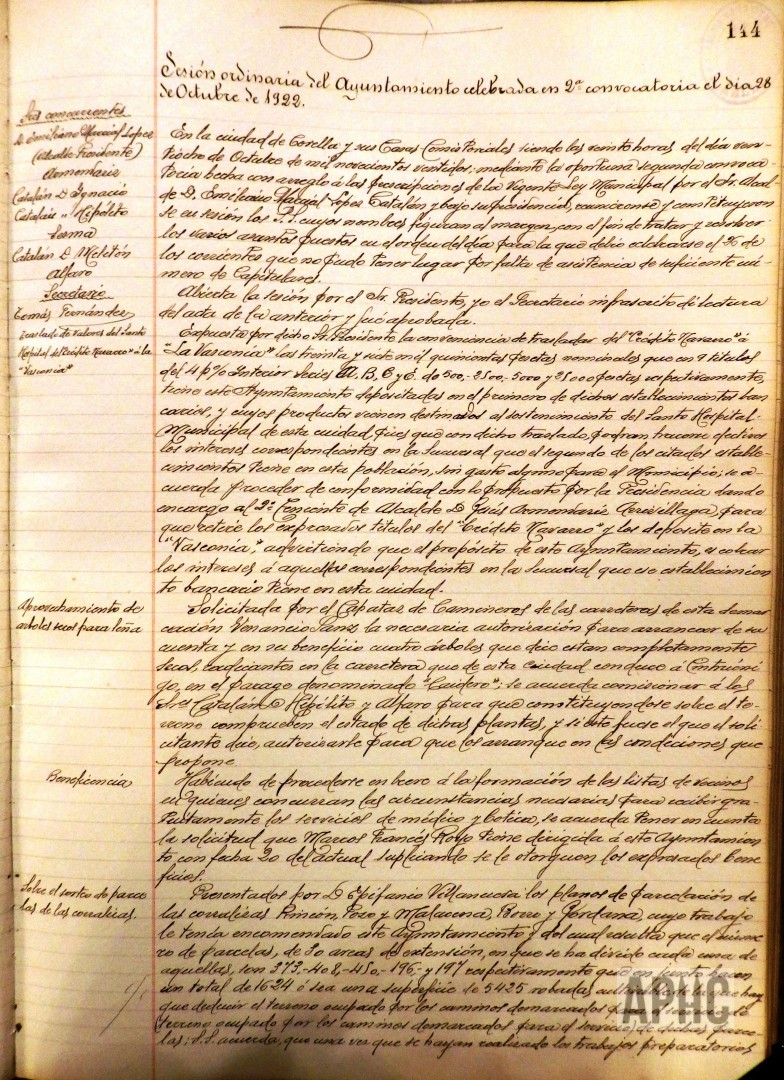 144
Sesión ordinaria del Ayuntamiento celebrada en 2ª convocatoria el dia 28
de Octubre de 1922.
Sres concurrentes
D. Emiliano Lopez
(Alcalde Presidente)
Armendariz
Catalán D. Ignacio
Catalán " Hipólito
Lerma
Catalán D. Melitón
Alfaro
Secretario
Tomás Fernández
En la ciudad de Corella y sus Casas Consistoriales siendo las veinte horas del día vein-
tiocho de Octubre de mil novecientos ventidos; mediante la oportuna segunda convoca-
toria hecha con arreglo á las prescripciones de la Vigente Ley Municipal por el Sr. Alcal
de D. Emiliano Lopez Catalán y bajo su presidencia, reunieronse y constituyeron
se en sesión los S.S. cuyos nombres figuran al margen, con el fin de tratar y resolver
los varios asuntos puestos en el orden del día para la que debio celebrarse el 26 de
los corrientes que no pudo tener lugar por falta de asistencia de suficiente nú-
mero de Capitulares.
Abierta la sesión por el Sr. Presidente, yo el Secretario infrascrito di lectura
del acta de la anterior y fué aprobada.
Traslado de valores del Santo
Hospital del Crédito Navarro" á la
"Vasconia"
Expuesta por dicho Sr. Presidente la conveniencia de trasladar del "Crédito Navarro" á
"La Vasconia" las treinta y siete mil quinientas pesetas nominales que en 9 titulos
del 4 p% Interior Series A, B, C y E. de 500,-2500,-5000 y 25000 pesetas respectivamente,
tiene este Ayuntamiento depositadas en el primero de dichos establecimientos ban
carios, y cuyos productos vienen destinados al sostenimiento del Santo Hospital-
Municipal de esta ciudad, pues que con dicho traslado, podran hacerse efectivos
los intereses correspondientes en la Sucursal que el segundo de los citados estable-
cimientos tiene en esta población, sin gasto alguno para el Municipio; se a-
cuerda proceder de conformidad con lo propuesto por la Presidencia dando
encargo al 2º Teniente de Alcalde D. Jesús Armendariz para
que retire los expresados titulos del "Crédito Navarro" y los deposite en la
"Vasconia", advirtiendo que el propósito de este Ayuntamiento, es cobrar
los intereses á aquellos correspondientes en la Sucursal que ese establecimien
to bancario tiene en esta ciudad.
Aprovechamiento de
arboles secos para leña
Solicitada por el Capataz de Camineros de las carreteras de esta demar
cación Venancio Sanz la necesaria autorización para arrancar de su
cuenta y en su beneficio cuatro árboles que dice estan completamente
secos, radicantes en la carretera que de esta ciudad conduce á Cintrueni
go, en el parage denominado "Caidero"; se acuerda comisionar á los
Sres Catalán D. Hipólito y Alfaro para que constituyendose sobre el te-
rreno comprueben el estado de dichas plantas, y si éste fuese el que el soli
citante dice, autorizarle para que los arranque en las condiciones que
propone.
Beneficencia
Habiendo de procederse en breve á la formación de las listas de vecinos
en quienes concurran las circunstancias necesarias para recibir gra-
tuitamente los servicios de médico y botica, se acuerda tener en cuenta
la solicitud que Marcos Francés Royo tiene dirigida á este Ayuntamien
to con fecha 20 del actual suplicando se le otorguen los expresados bene
ficios.
Sobre el sorteo de parce
las de las corralizas.
Presentados por D. Epifanio Villanueva los planos de parcelación de
las corralizas Rincón, Pozo y Malacena, Borro y Jordana, cuyo trabajo
le tenía encomendado este Ayuntamiento y del cual resulta que el núme
ro de parcelas, de 30 areas de extensión, en que se ha divido cada una de
aquellas, son 373,-408,-450,-196- y 197 respectivamente que en junto hacen
un total de 1624 ó sea una superficie de 5425 robadas hay
que deducir el terreno ocupado por los caminos demarcados para el servicio de
terreno ocupado por los caminos demarcados para el servicio de dichas parce-
las; S.S. acuerda, que una vez que se hayan realizado los trabajos preparatorios
APHC